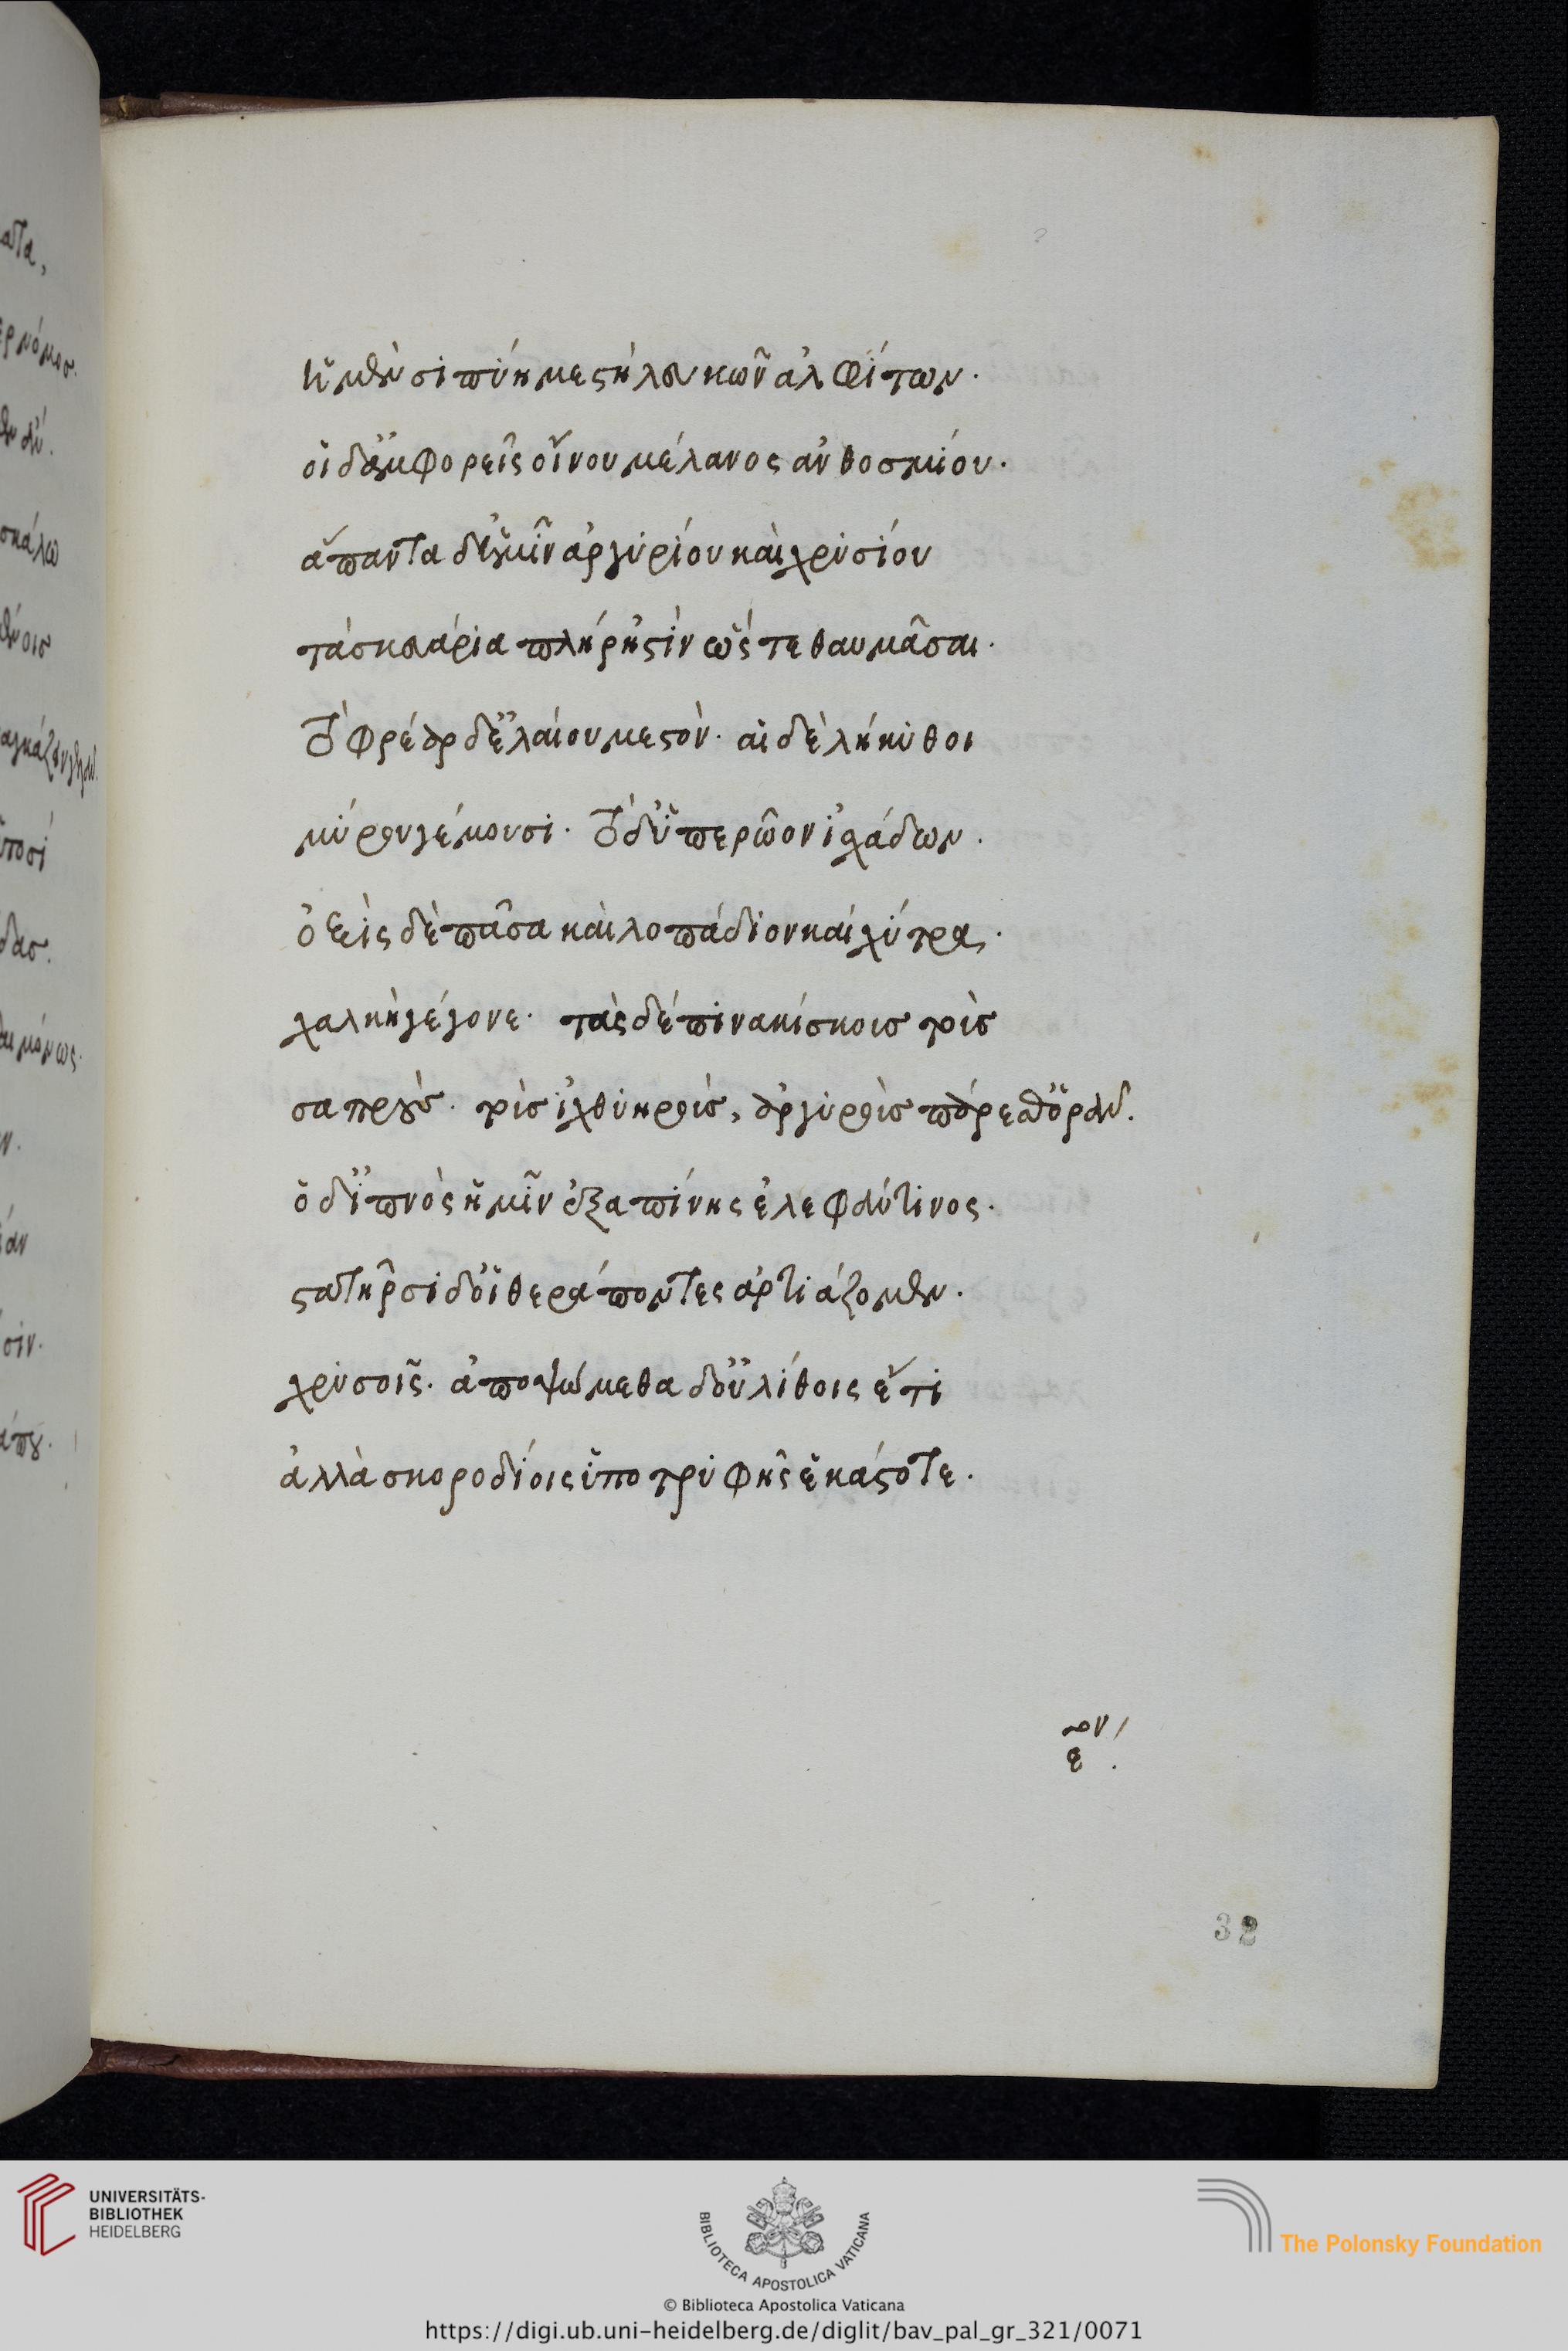 ἡ μὲν σιπύη μεστὴ λευκῶν ἀλφίτων.
οἱ δ' ἀμφορεῖς οἴνου μέλανος ἀνθοσμίου.
ἅπαντα δ' ἡμῖν ἀργυρίου καὶ χρυσίου
τὰ σκευάρια πλήρη ἐστὶν ὥστε θαυμάσαι.
τὸ φρέαρ δ' ἐλαίου μεστόν. αἱ δὲ λήκυθοι
μύρου γέμουσι. τὸ δ' ὑπερῶον ἰσχάδων.
ὀξὶς δὲ πᾶσα καὶ λοπάδιον καὶ χύτρα
χαλκῆ γέγονε. τοὺς δὲ πινακίσκους τοὺς
σαπροὺς τοὺς ἰχθυηροὺς, ἀργυροῦς πάρεσθ' ὁρᾶν.
ὁ δ' ἰπνὸς ἡμῖν ἐξαπίνης ἐλεφάντινος.
στατῆρσι δ' οἱ θεράποντες ἀρτιάζομεν.
χρυσοῖς. ἀποψώμεθα δ' οὐ λίθοις ἔτι
ἀλλὰ σκοροδίοις ὑπὸ τρυφῆς ἑκάστοτε.
32
UNIVERSITÄTS-
BIBLIOTHEK
HEIDELBERG
BIBLIOTECA APOSTOLICA VATICANA
The Polonsky Foundation
© Biblioteca Apostolica Vaticana
https://digi.ub.uni-heidelberg.de/diglit/bav_pal_gr_321/0071